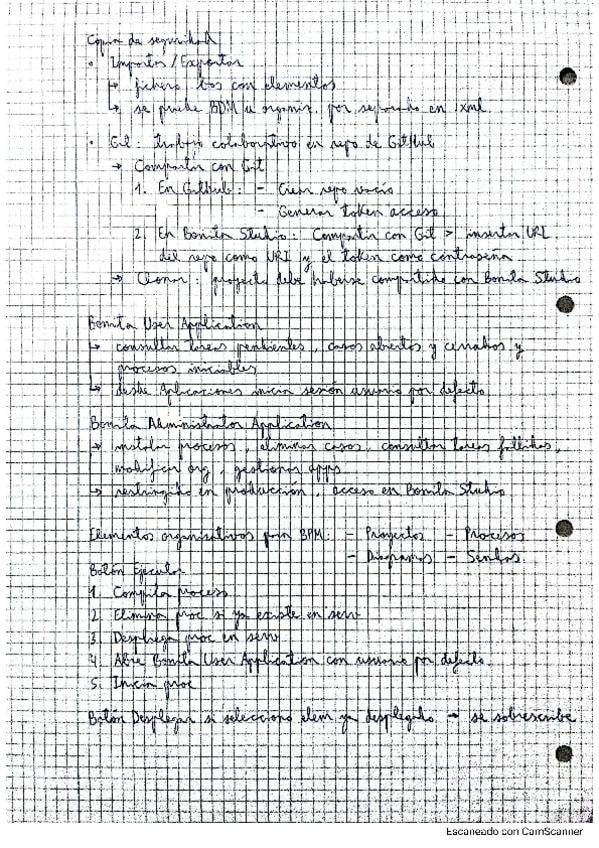 Copia de seguridad
• Importar / Exportar
↳ fichero .bos con elementos
↳ se puede BDM u organiz. por separado en .xml
• Git: trabajo colaborativo en repo de GitHub
→ Compartir con Git
1. En GitHub: - Crear repo vacío
- Generar token acceso
2. En Bonita Studio: Compartir con Git > insertar URL
del repo como URI y el token como contraseña
→ Clonar: proyecto debe haberse compartido con Bonita Studio
Bonita User Application
↳ consultar tareas pendientes, casos abiertos y cerrados y
procesos iniciables
↳ desde Aplicaciones inicia sesión usuario por defecto
Bonita Administrator Application
→ instalar procesos, eliminar casos, consultar tareas fallidas,
modificar org, gestionar apps
→ restringido en producción, acceso en Bonita Studio
Elementos organizativos para BPM: - Proyectos - Procesos
- Diagramas - Sendas
Botón Ejecutar
1. Compila proceso
2. Elimina proc si ya existe en serv
3. Despliega proc en serv
4. Abre Bonita User Application con usuario por defecto
5. Inicia proc
Botón Desplegar si selecciono elem ya desplegado → se sobrescribe
Escaneado con CamScanner